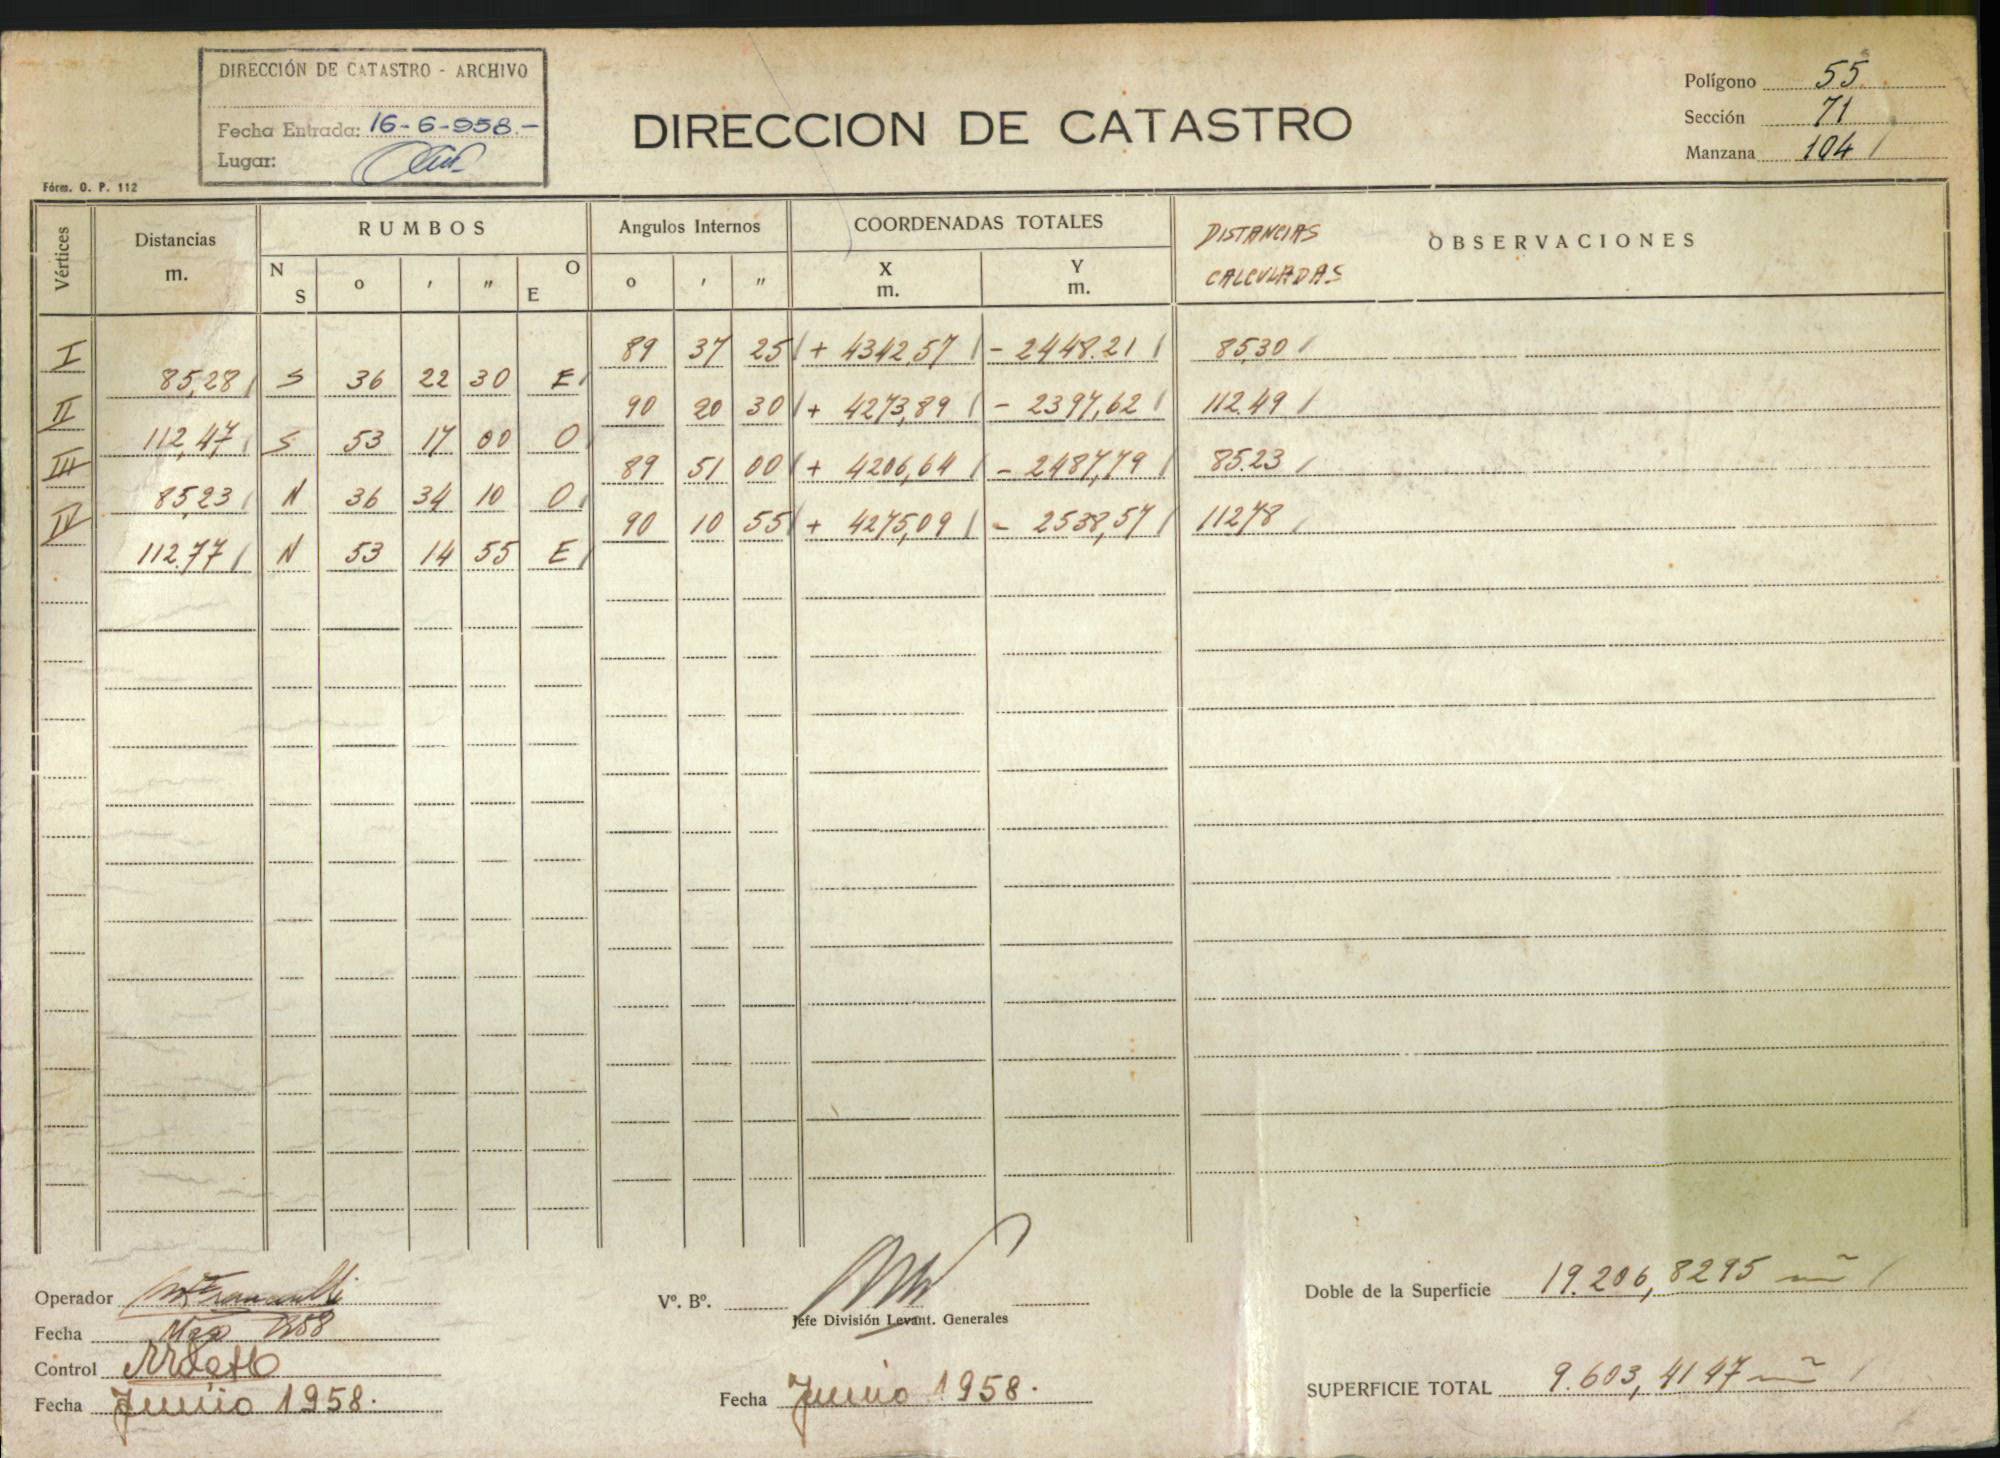 DIRECCIÓN DE CATASTRO - ARCHIVO
Fecha Entrada: 16-6-958.-
Lugar:
DIRECCION DE CATASTRO
Polígono 55
Sección 71
Manzana 104 /
Fórm. O. P. 112
Vértices
Distancias
m.
RUMBOS
N S
o
'
"
O E
Angulos Internos
o
'
"
COORDENADAS TOTALES
X
m.
Y
m.
DISTANCIAS
CALCULADAS
OBSERVACIONES
I 89 37 25 / + 4342,57 / - 2448.21 / 85,30 /
85,28 / S 36 22 30 E /
II 90 20 30 / + 4273,89 / - 2397,62 / 112.49 /
112,47 / S 53 17 00 O /
III 89 51 00 / + 4206,64 / - 2487,79 / 85.23 /
85,23 / N 36 34 10 O /
IV 90 10 55 / + 4275,09 / - 2538,57 / 112,78 /
112.77 / N 53 14 55 E /
Operador
Fecha 1958
Control
Fecha Junio 1958.
Vº. Bº.
Jefe División Levant. Generales
Fecha Junio 1958.
Doble de la Superficie 19.206,8295 m² /
SUPERFICIE TOTAL 9.603,4147 m² /